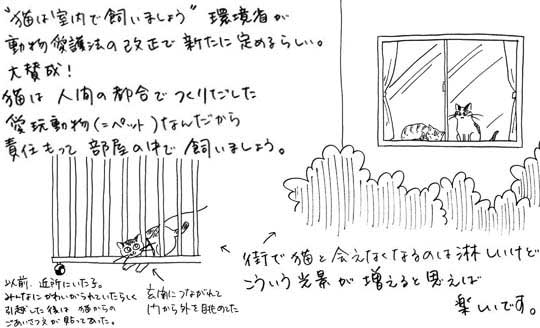 "猫は室内で飼いましょう" 環境省が
動物愛護法の改正で新たに定めるらしい。
大賛成！
猫は人間の都合でつくりだした
愛玩動物(=ペット)なんだから
責任もって部屋の中で飼いましょう。
以前、近所にいた子。
みんなにかわいがられていたらしく
引越した後は猫からの
ごあいさつ文が貼ってあった。
玄関につながれて
門から外を眺めてた
街で猫と会えなくなるのは淋しいけど
こういう光景が増えると思えば
楽しいです。